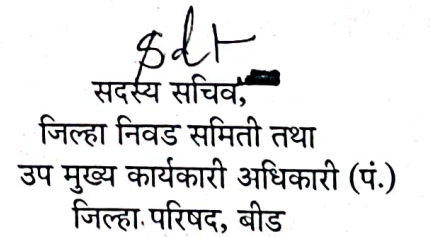 sdt
सदस्य सचिव,
जिल्हा निवड समिती तथा
उप मुख्य कार्यकारी अधिकारी (पं.)
जिल्हा परिषद, बीड